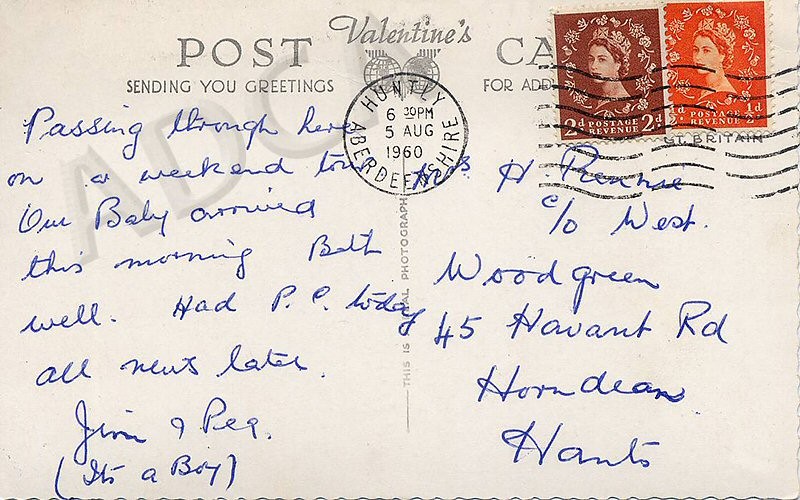 Valentine's
POST CA
SENDING YOU GREETINGS FOR ADD
HUNTLY
6 30PM
5 AUG
1960
ABERDEENSHIRE
2d POSTAGE REVENUE 2d
½d POSTAGE REVENUE ½d
GT. BRITAIN
Passing through here
on a weekend tour
Our Baby arrived
this morning Both
well. Had P.C. today
all news later.
Jim & Peg.
(Its a Boy)
THIS IS A REAL PHOTOGRAPH
Mrs H.
c/o West.
Woodgreen
45 Havant Rd
Horndean
Hants
ADCA